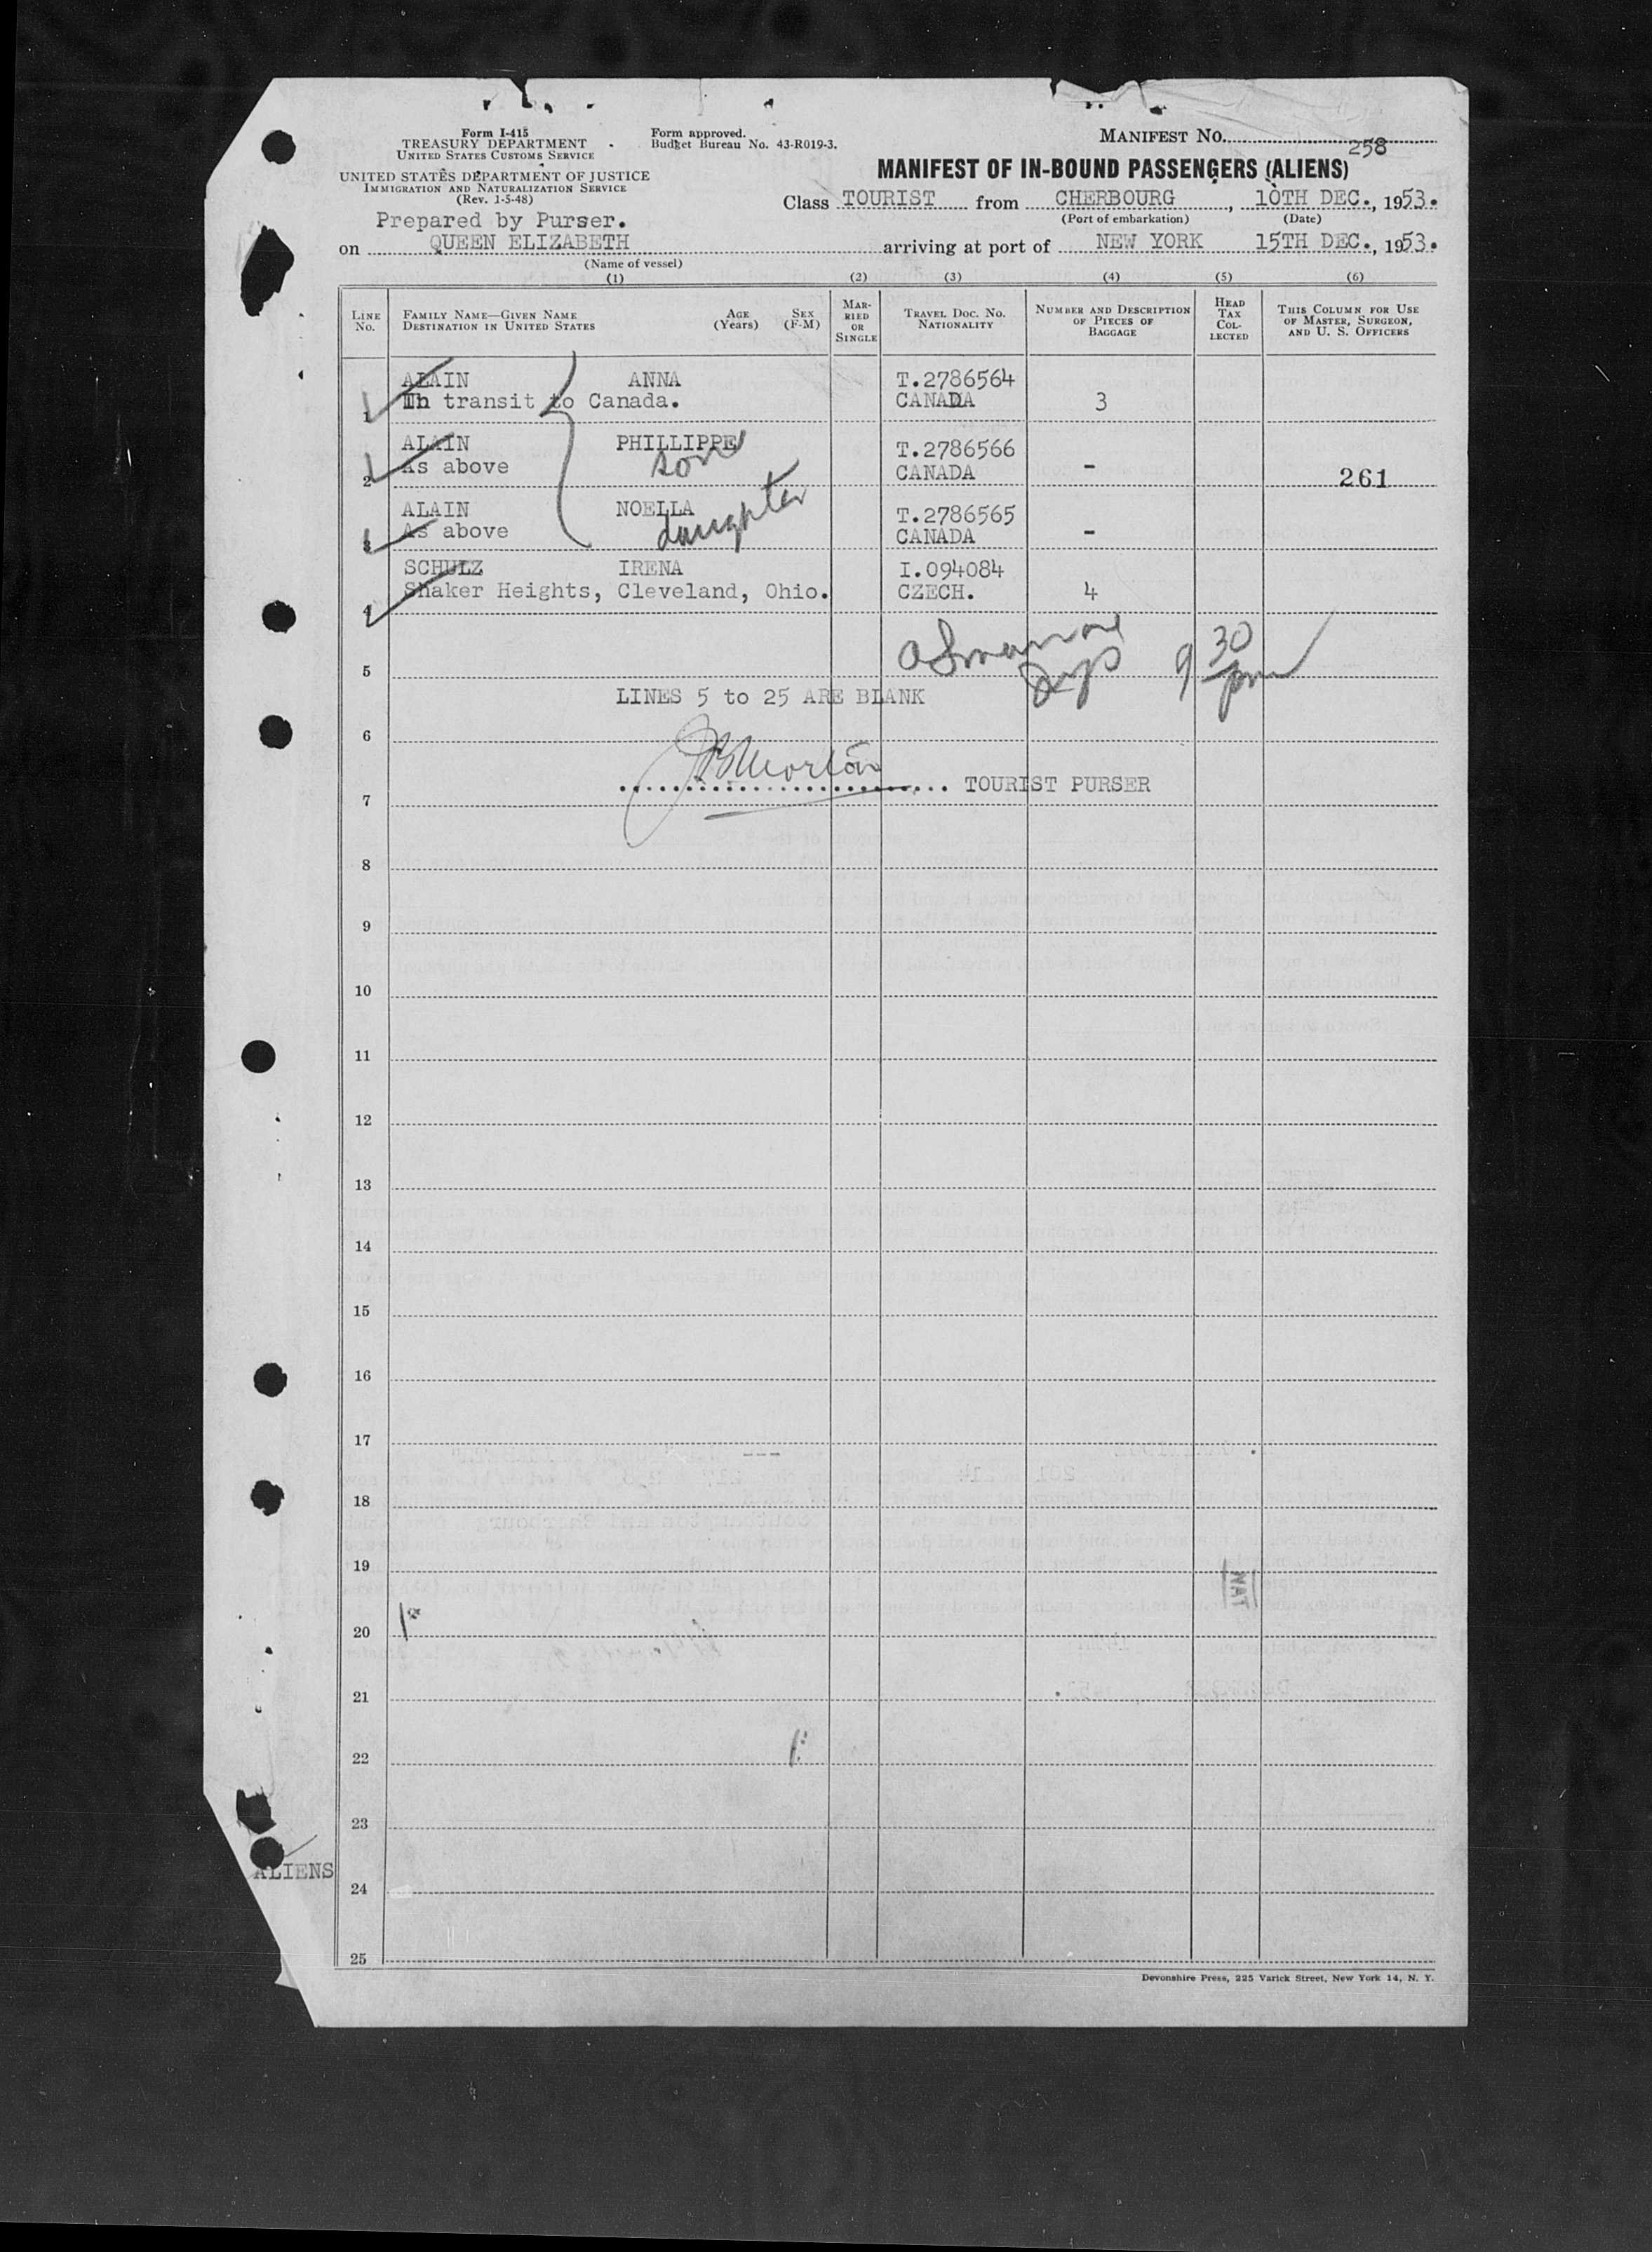 Form I-415
TREASURY DEPARTMENT
UNITED STATES CUSTOMS SERVICE
UNITED STATES DEPARTMENT OF JUSTICE
IMMIGRATION AND NATURALIZATION SERVICE
(Rev. 1-5-48)
Form approved.
Budget Bureau No. 43-R019-3.
MANIFEST NO. 258
MANIFEST OF IN-BOUND PASSENGERS (ALIENS)
Class TOURIST from CHERBOURG, 10TH DEC., 1953.
(Port of embarkation) (Date)
Prepared by Purser.
on QUEEN ELIZABETH arriving at port of NEW YORK 15TH DEC., 1953.
(Name of vessel)
(1) (2) (3) (4) (5) (6)
LINE No. FAMILY NAME—GIVEN NAME DESTINATION IN UNITED STATES AGE (Years) SEX (F-M) MARRIED OR SINGLE TRAVEL DOC. NO. NATIONALITY NUMBER AND DESCRIPTION OF PIECES OF BAGGAGE HEAD TAX COLLECTED THIS COLUMN FOR USE OF MASTER, SURGEON, AND U. S. OFFICERS
ALAIN ANNA T.2786564
1 In transit to Canada. CANADA 3
ALAIN PHILLIPPE T.2786566
son
2 As above CANADA - 261
ALAIN NOELLA T.2786565
daughter
3 As above CANADA -
SCHULZ IRENA I.094084
4 Shaker Heights, Cleveland, Ohio. CZECH. 4
9 30 pm
5
LINES 5 to 25 ARE BLANK
6
JB Morton
TOURIST PURSER
7
8
9
10
11
12
13
14
15
16
17
18
19
NAT
20
21
22
23
ALIENS
24
25
Devonshire Press, 225 Varick Street, New York 14, N. Y.